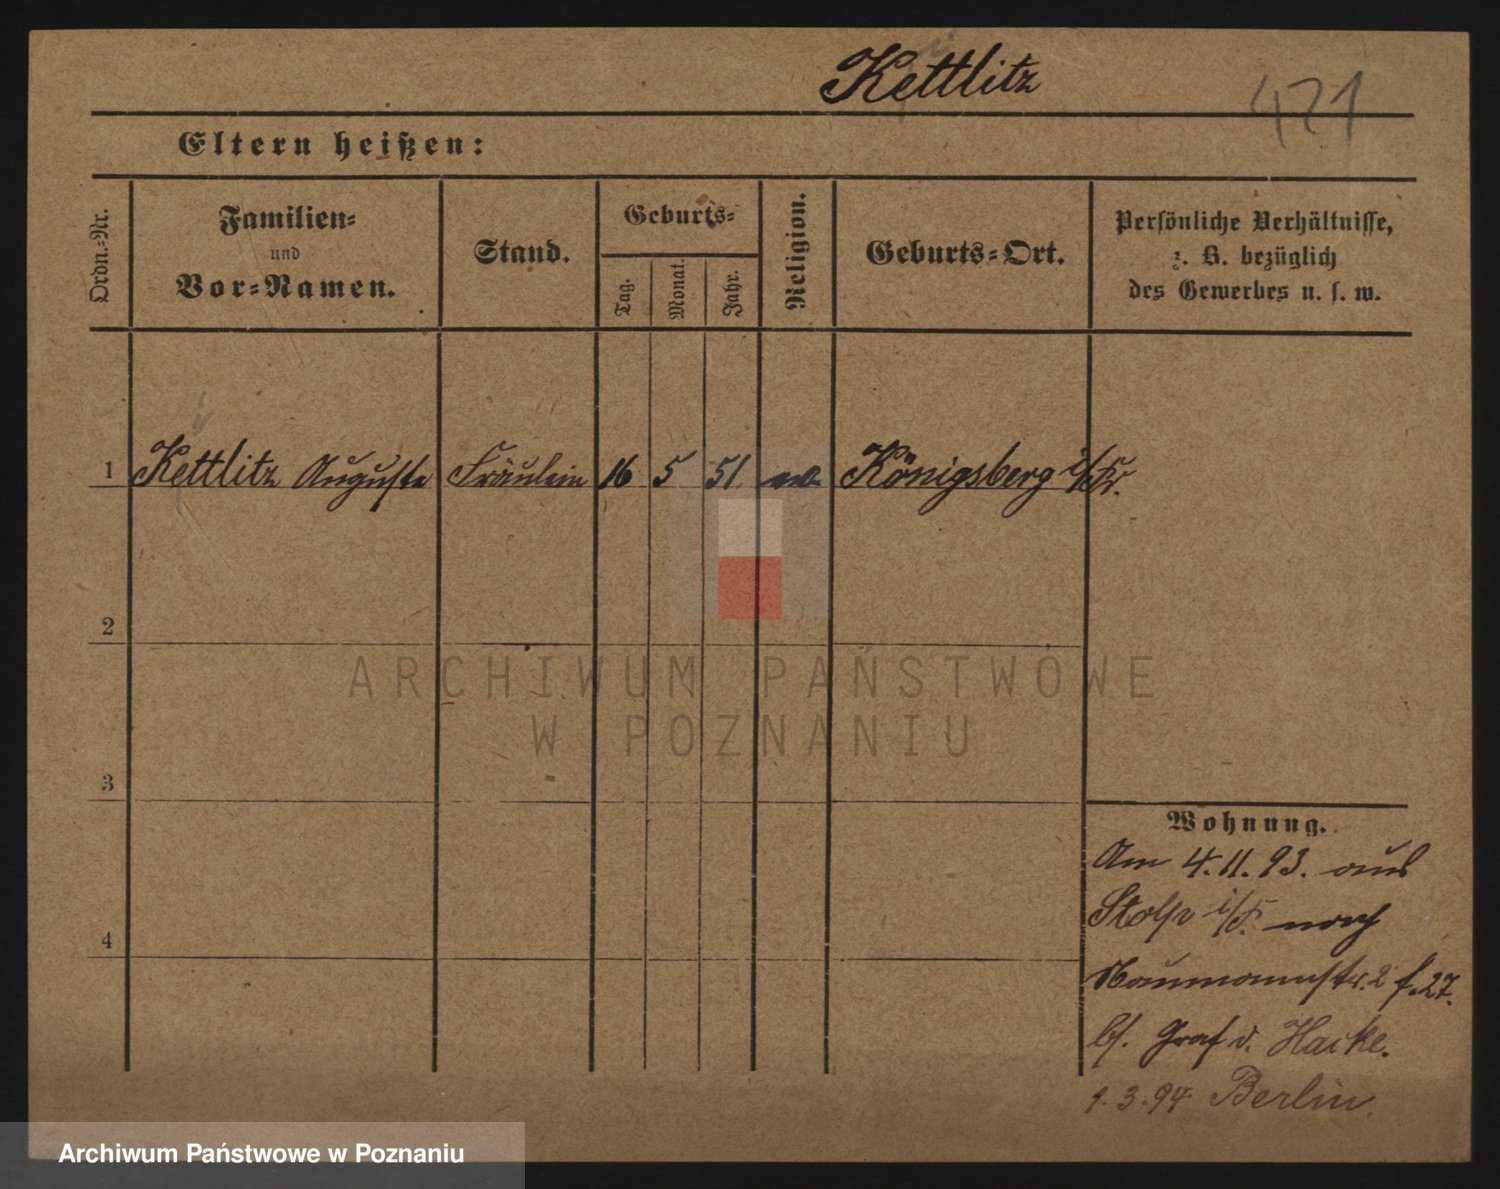 Kettlitz
421
Eltern heißen:
Ordn.-Nr.
Familien-
und
Vor-Namen.
Stand.
Geburts-
Tag.
Monat.
Jahr.
Religion.
Geburts-Ort.
Persönliche Verhältnisse,
z. B. bezüglich
des Gewerbes u. s. w.
1 Kettlitz Auguste Fräulein 16 5 51 ev. Königsberg i/Pr.
2
3
4
Wohnung.
Am 4.11.93. aus
Stolp i/P. nach
Naumannstr. 2 f. 27.
bf. Graf v. Hacke.
1.3.94 Berlin.
ARCHIWUM PAŃSTWOWE
W POZNANIU
Archiwum Państwowe w Poznaniu